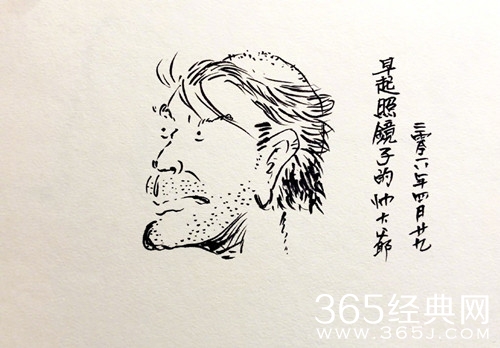 早起照鏡子的帅大爺
二零一六年四月廿九
365经典网
WWW.365J.COM